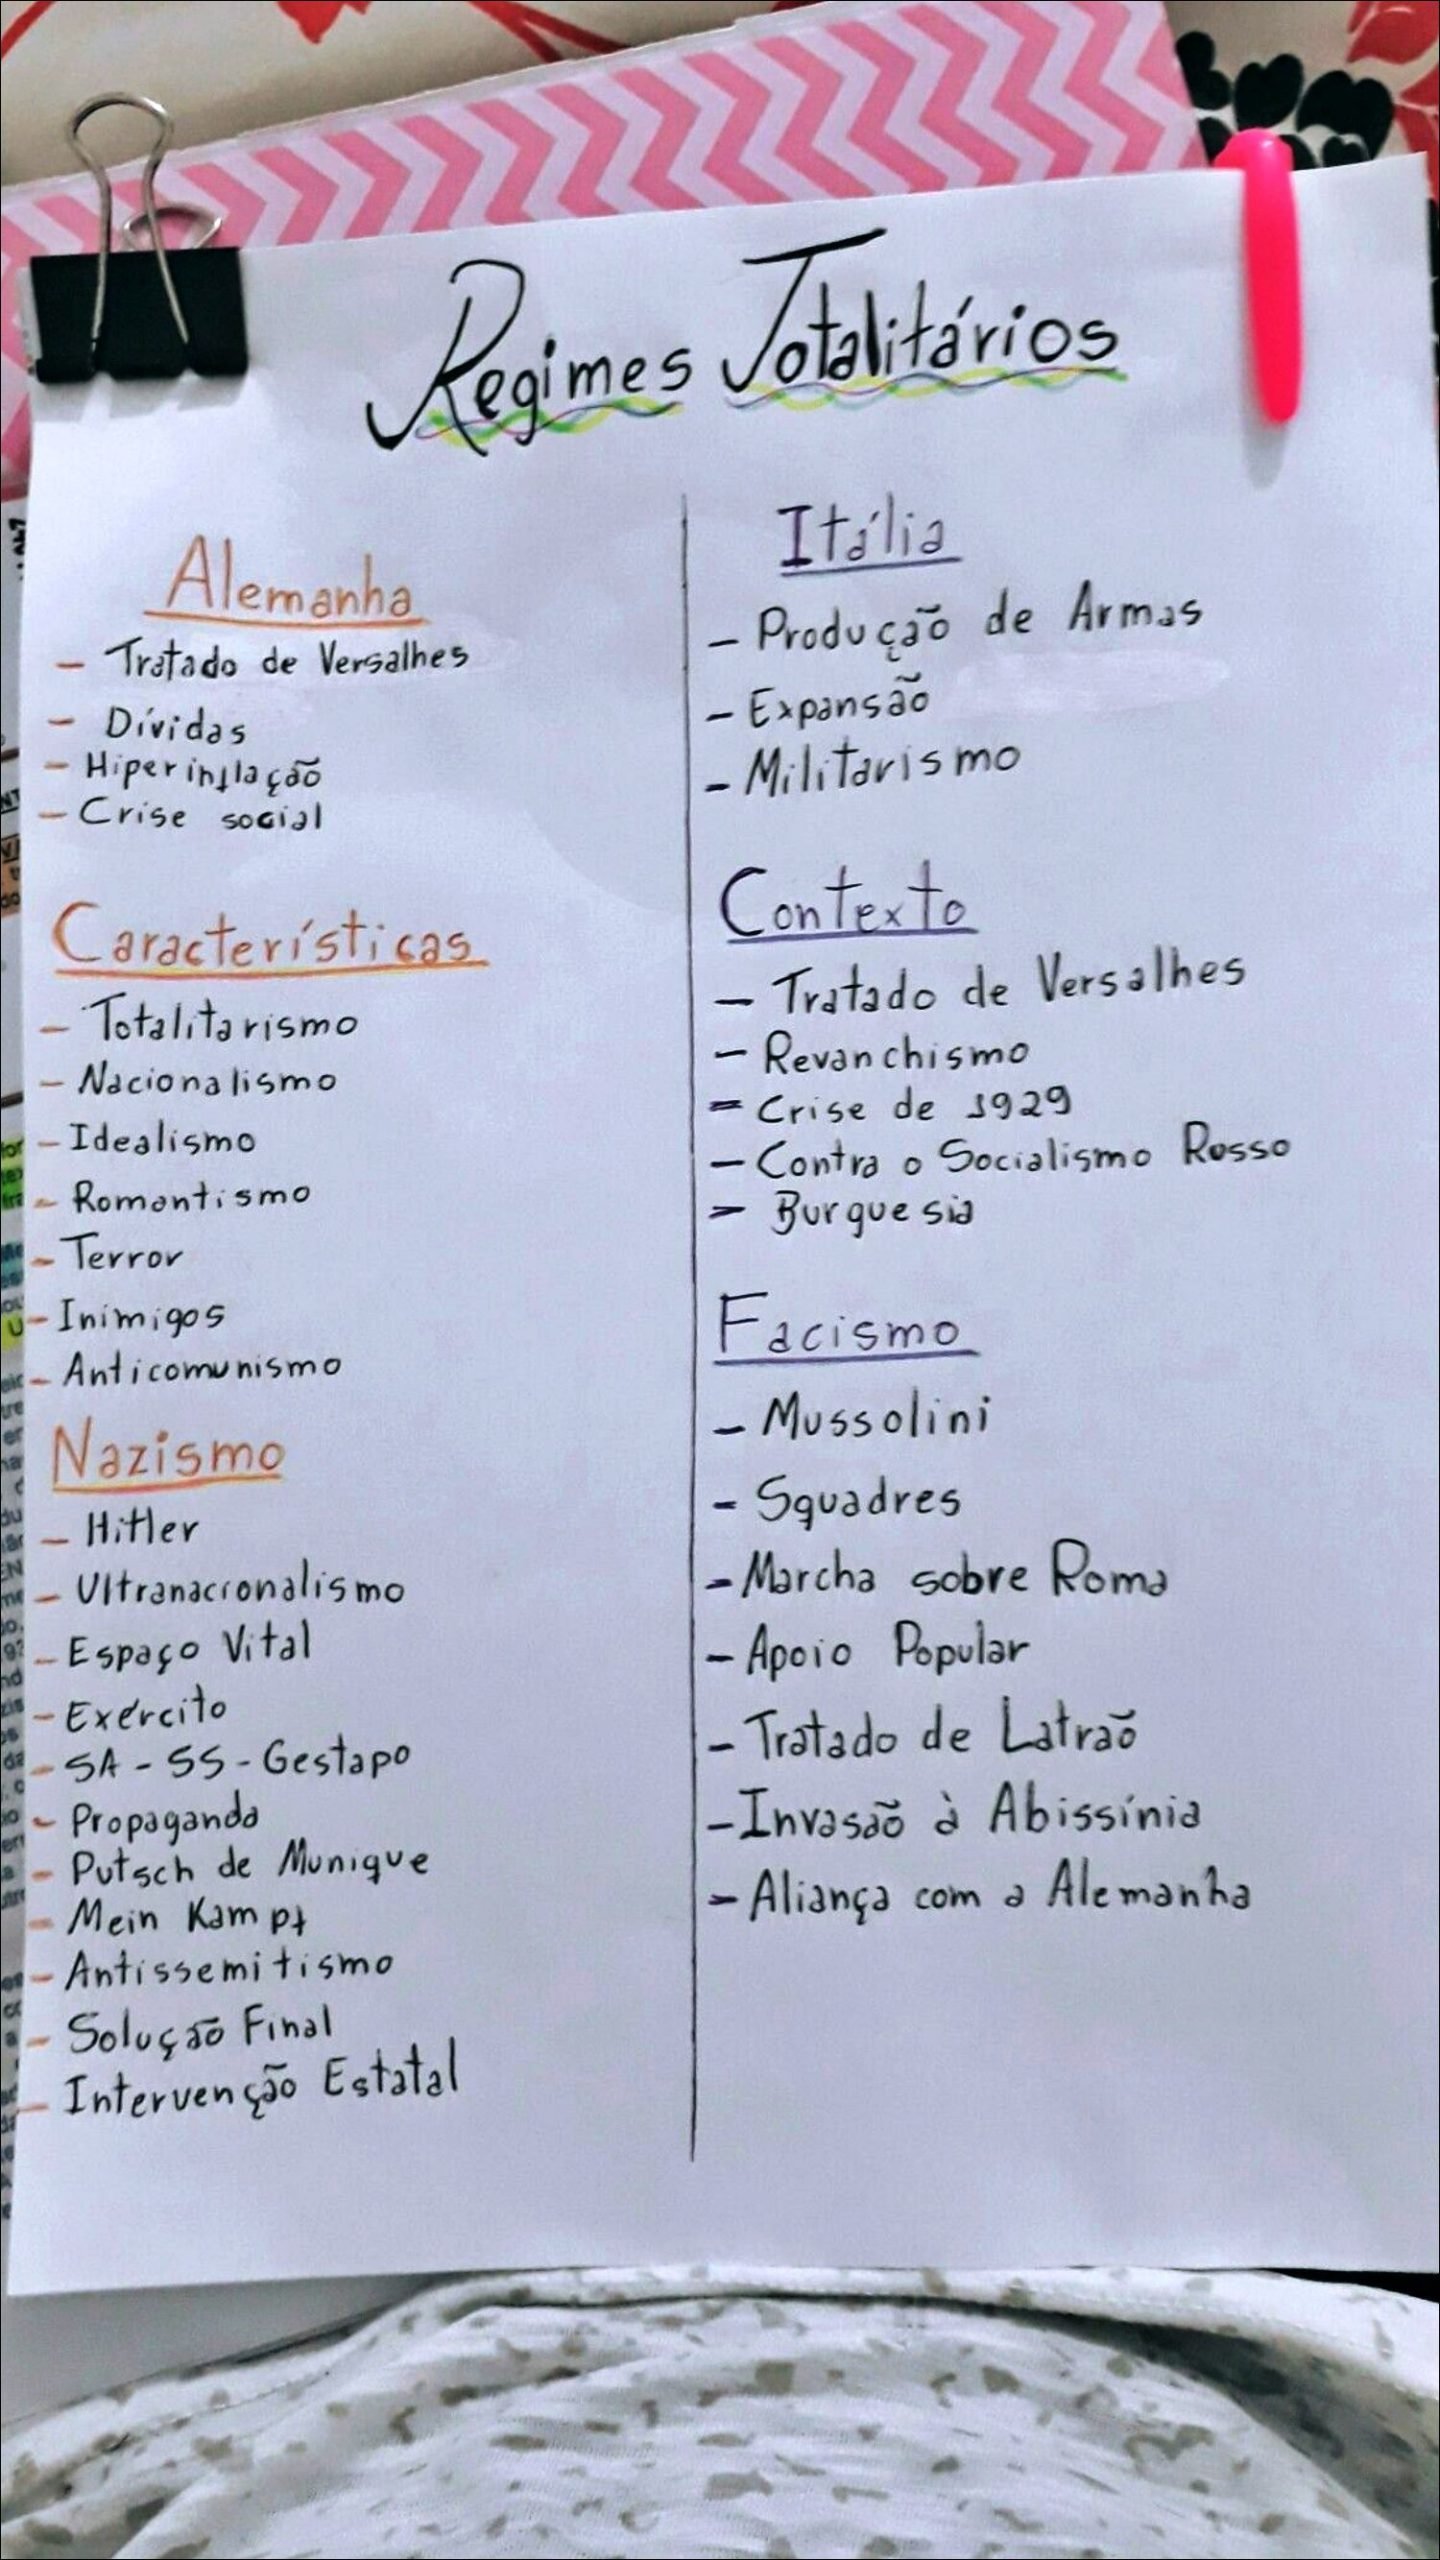 Regimes Totalitários
Alemanha
- Tratado de Versalhes
- Dívidas
- Hiperinflação
- Crise social
Características
- Totalitarismo
- Nacionalismo
- Idealismo
- Romantismo
- Terror
- Inimigos
- Anticomunismo
Nazismo
- Hitler
- Ultranacionalismo
- Espaço Vital
- Exército
- SA - SS - Gestapo
- Propaganda
- Putsch de Munique
- Mein Kampf
- Antissemitismo
- Solução Final
- Intervenção Estatal
Itália
- Produção de Armas
- Expansão
- Militarismo
Contexto
- Tratado de Versalhes
- Revanchismo
- Crise de 1929
- Contra o Socialismo Rosso
- Burguesia
Facismo
- Mussolini
- Squadres
- Marcha sobre Roma
- Apoio Popular
- Tratado de Latrão
- Invasão à Abissínia
- Aliança com a Alemanha